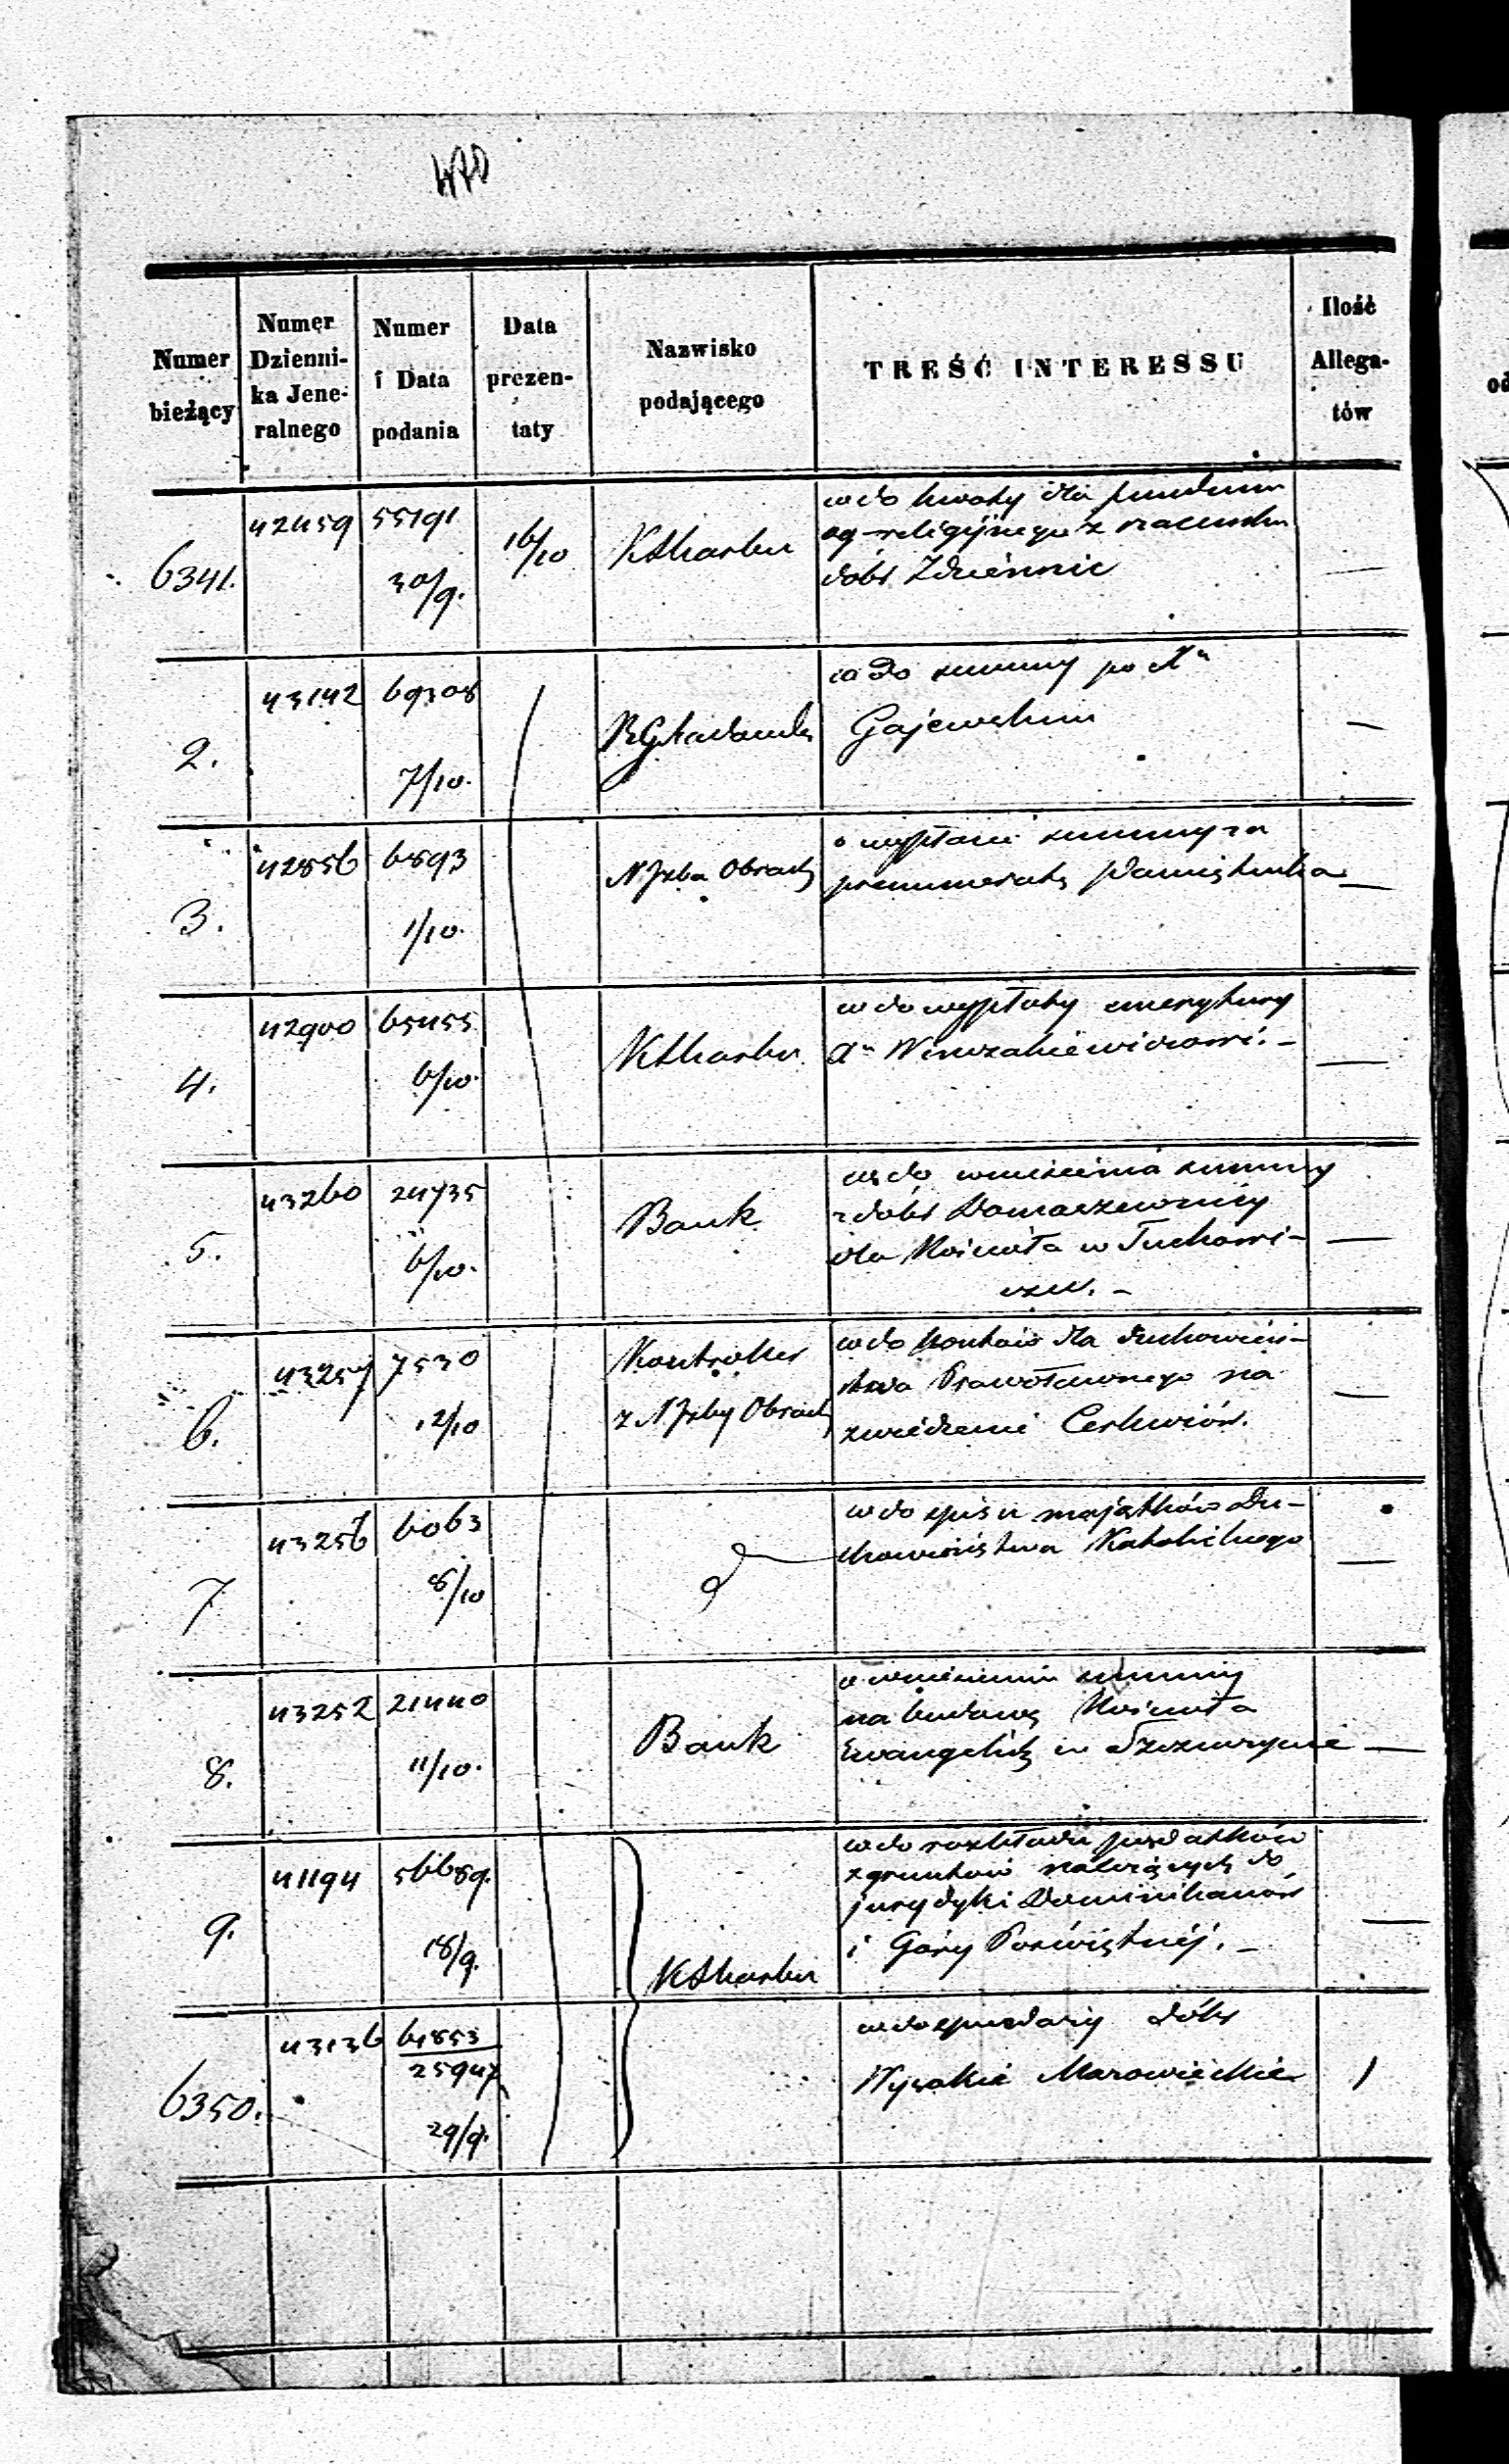 Numer bieżący
Numer Dzienni-ka Jene-ralnego
Numer i Data podania
Data prezen-taty
Nazwisko podającego
TREŚĆ INTERESSU
Ilość Allega-tów
6341.
42459
55191
30/9.
16/10
KSkarbu
wdo kwoty dla funduszu
og-religijnego z
dóbr
—
2.
43142
69308
7/10.
do summy po Xu
Gajewskim
—
3.
42856
6893
1/10.
N Izba Obrach
o wypłacie summy za
prenumeratę Pamiętnika
—
4.
42900
65455
6/10.
KSkarbu
wdo wypłaty emerytury
Xu
—
5.
43260
24735
6/10.
Bank
wdo wniesienia summy
z dóbr Domaszewnicy
dla Kościoła w Tuchowi-
czu. -
—
6.
43257
7530
12/10
Kontroller
z N Izby Obrach
wdo kosztów dla duchowień-
stwa Prawosławnego na
zwiedzenie Cerkwiów.
—
7
43256
6063
8/10
wdo spisu majątków Du-
chowieństwa Katolickiego
—
8.
43252
21440
11/10.
Bank
o wniesieniu summy
na budowę Kościoła
Ewangelick w
—
9.
41194
56689.
18/9.
KSkarbu
wdo rozkładu podatków
z gruntów należących do
jurydyki Dominikanów
i Góry
—
6350.
43136
61853
25947
29/9.
wdo sprzedaży dóbr
Wysokie Mazowieckie
1